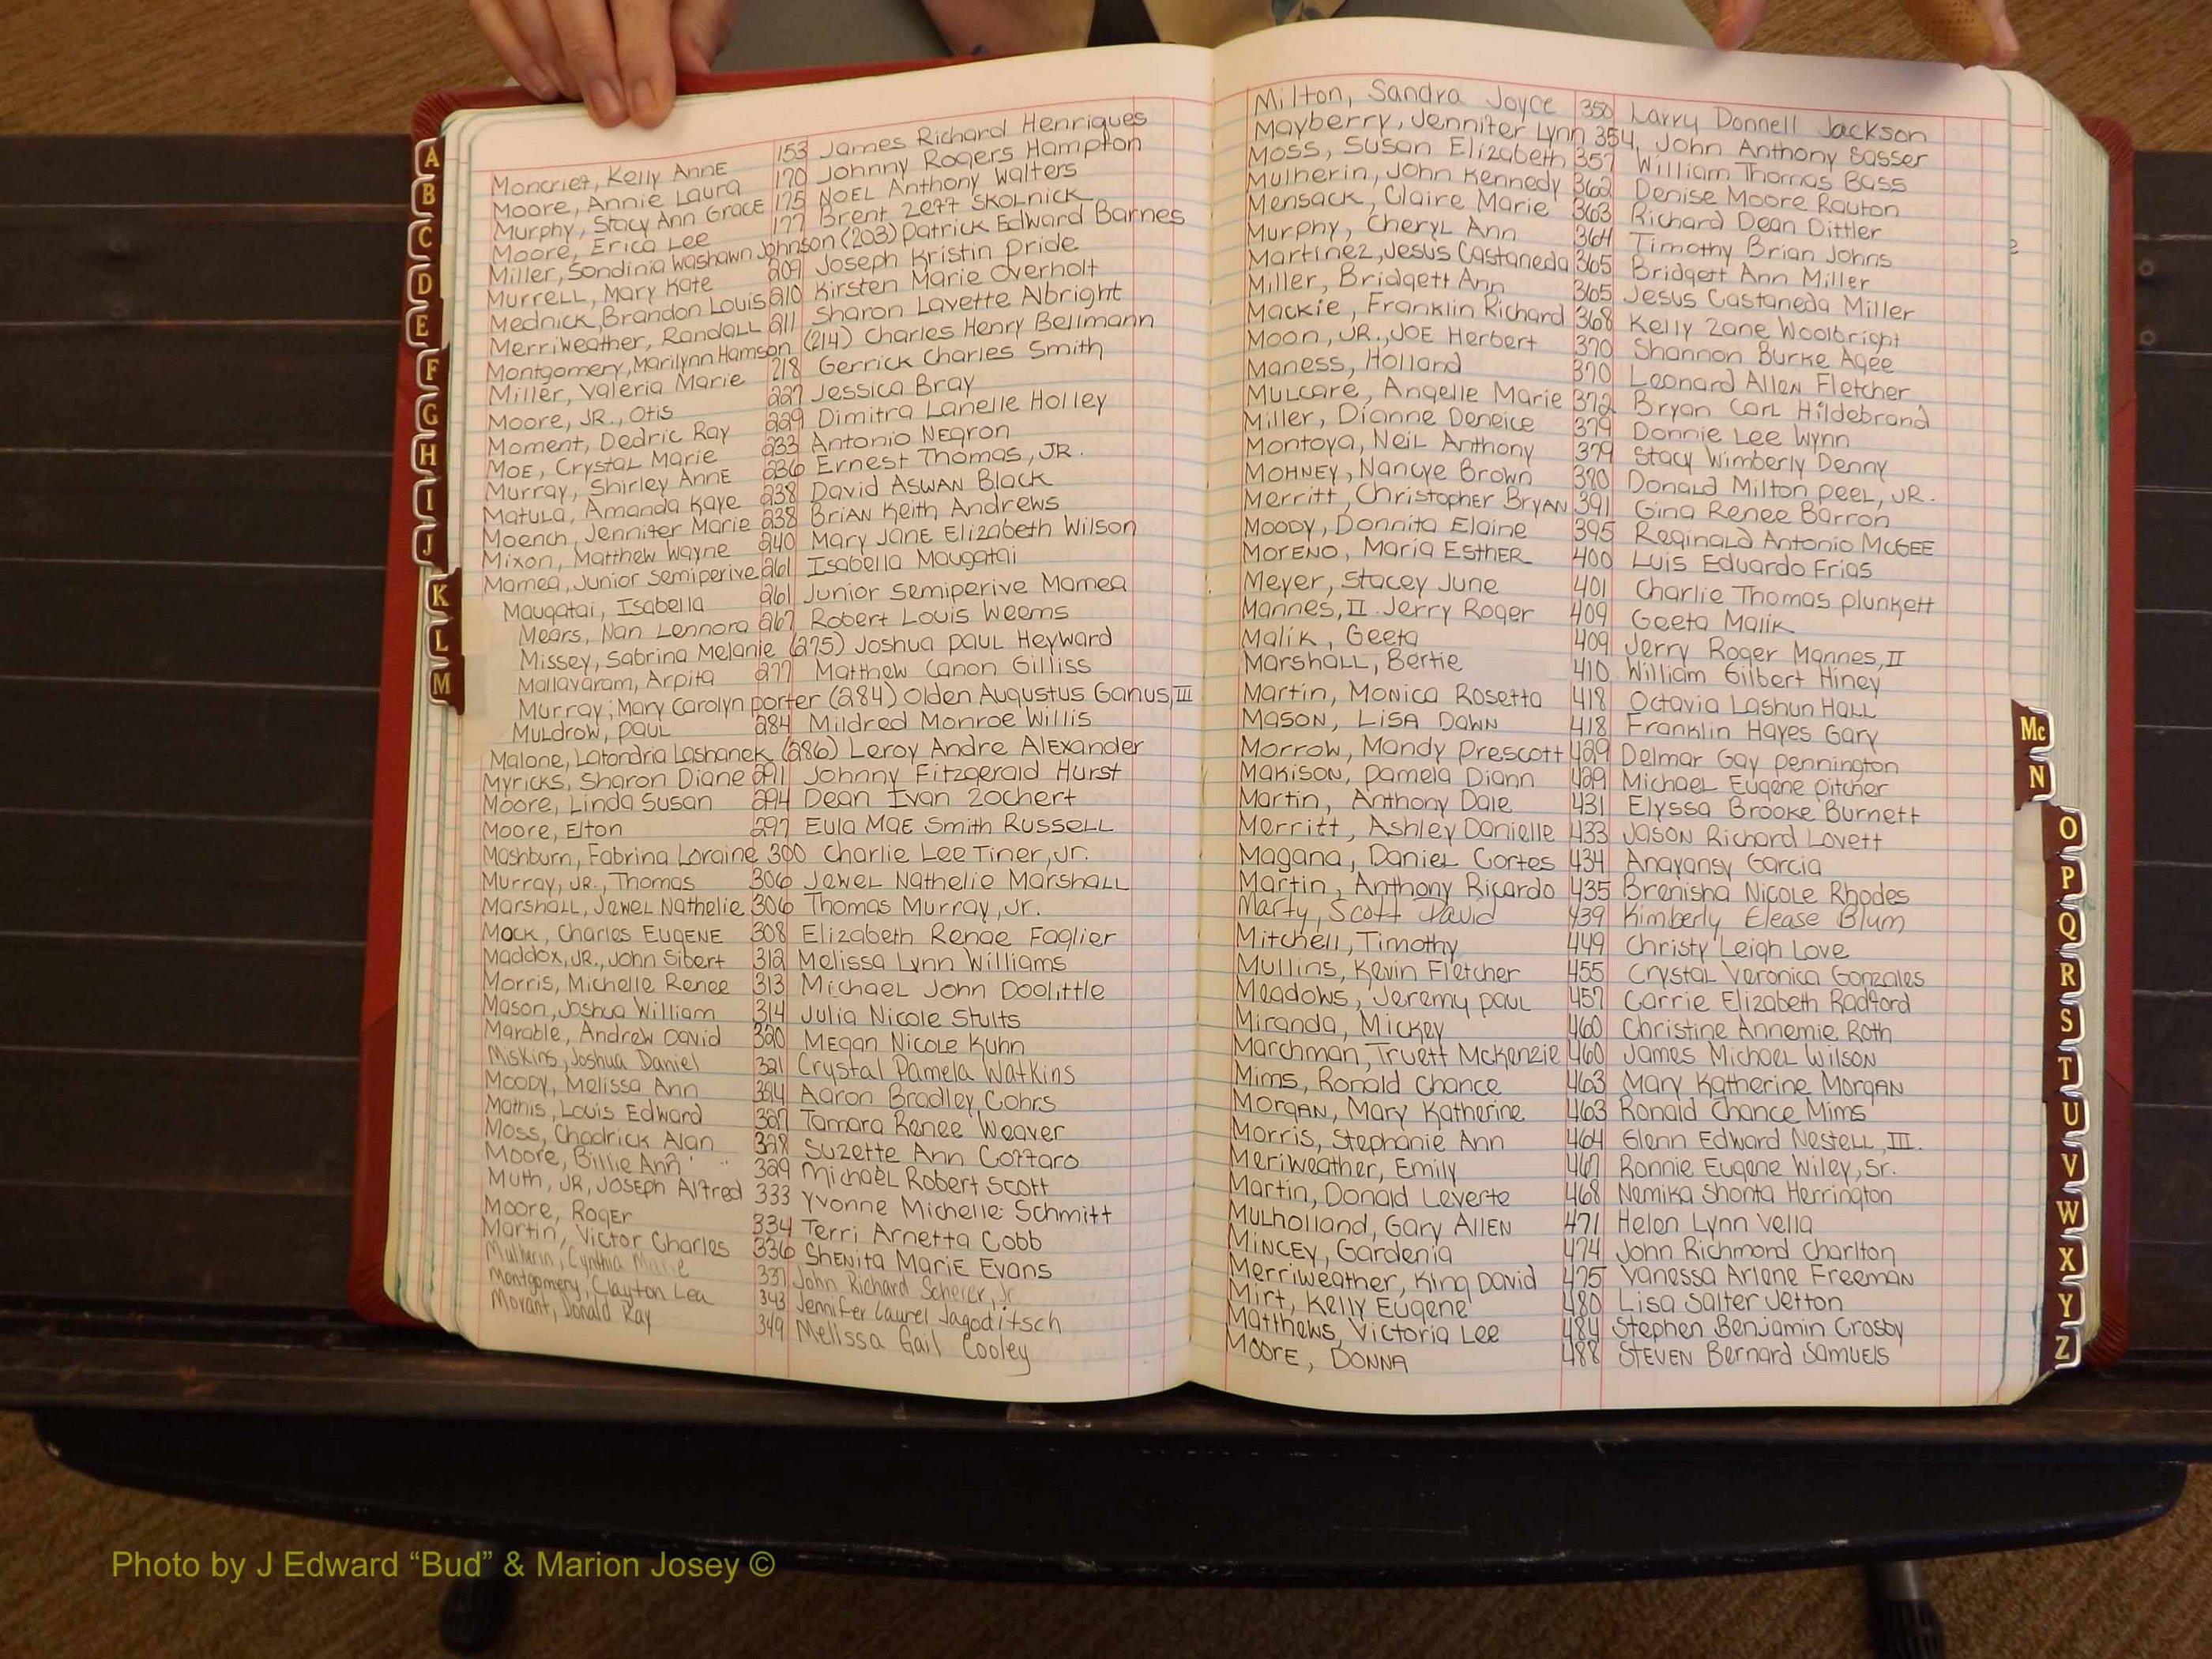 A
B
C
D
E
F
G
H
I
J
K
L
M
Moncrief, Kelly Anne 153 James Richard Henriques
Moore, Annie Laura 170 Johnny Rogers Hampton
Murphy, Stacy Ann Grace 175 Noel Anthony Walters
Moore, Erica Lee 177 Brent Zeff Skolnick
Miller, Sondinia Washawn Johnson (203) Patrick Edward Barnes
Murrell, Mary Kate 209 Joseph Kristin Pride
Mednick, Brandon Louis 210 Kirsten Marie Overholt
Merriweather, Randall 211 Sharon Lavette Albright
Montgomery, Marilynn Hamson (214) Charles Henry Bellmann
Miller, Valeria Marie 218 Gerrick Charles Smith
Moore, JR., Otis 227 Jessica Bray
Moment, Dedric Ray 229 Dimitra Lanelle Holley
Moe, Crystal Marie 233 Antonio Negron
Murray, Shirley Anne 236 Ernest Thomas, JR.
Matula, Amanda Kaye 238 David Aswan Black
Moench, Jennifer Marie 238 Brian Keith Andrews
Mixon, Matthew Wayne 240 Mary Jane Elizabeth Wilson
Mamea, Junior Semiperive 261 Isabella Maugatai
Maugatai, Isabella 261 Junior Semiperive Mamea
Mears, Nan Lennora 267 Robert Louis Weems
Missey, Sabrina Melanie (275) Joshua Paul Heyward
Mallavaram, Arpita 277 Matthew Canon Gilliss
Murray, Mary Carolyn Porter (284) Olden Augustus Ganus, III
Muldrow, Paul 284 Mildred Monroe Willis
Malone, Latondria Lashanek (286) Leroy Andre Alexander
Myricks, Sharon Diane 291 Johnny Fitzgerald Hurst
Moore, Linda Susan 294 Dean Ivan Zochert
Moore, Elton 297 Eula Mae Smith Russell
Mashburn, Fabrina Loraine 300 Charlie Lee Tiner, Jr.
Murray, JR., Thomas 306 Jewel Nathelie Marshall
Marshall, Jewel Nathelie 306 Thomas Murray, Jr.
Mock, Charles Eugene 308 Elizabeth Renae Faglier
Maddox, JR., John Sibert 312 Melissa Lynn Williams
Morris, Michelle Renee 313 Michael John Doolittle
Mason, Joshua William 314 Julia Nicole Stults
Marable, Andrew David 320 Megan Nicole Kuhn
Miskins, Joshua Daniel 321 Crystal Pamela Watkins
Moody, Melissa Ann 324 Aaron Bradley Cohrs
Mathis, Louis Edward 327 Tamara Renee Weaver
Moss, Chadrick Alan 328 Suzette Ann Cottaro
Moore, Billie Ann 329 Michael Robert Scott
Muth, JR, Joseph Alfred 333 Yvonne Michelle Schmitt
Moore, Roger 334 Terri Arnetta Cobb
Martin, Victor Charles 336 Shenita Marie Evans
Mulherin, Cynthia Marie 337 John Richard Scherer, Jr
Montgomery, Clayton Lea 343 Jennifer Laurel Jagoditsch
Morant, Donald Ray 349 Melissa Gail Cooley
Milton, Sandra Joyce 350 Larry Donnell Jackson
Mayberry, Jennifer Lynn 354, John Anthony Sasser
Moss, Susan Elizabeth 357 William Thomas Bass
Mulherin, John Kennedy 362 Denise Moore Rauton
Mensack, Claire Marie 363 Richard Dean Dittler
Murphy, Cheryl Ann 364 Timothy Brian Johns
Martinez, Jesus Castaneda 365 Bridgett Ann Miller
Miller, Bridgett Ann 365 Jesus Castaneda Miller
Mackie, Franklin Richard 368 Kelly Zane Woolbright
Moon, JR., Joe Herbert 370 Shannon Burke Agee
Maness, Holland 370 Leonard Allen Fletcher
Mulcare, Angelle Marie 372 Bryan Carl Hildebrand
Miller, Dianne Deneice 379 Donnie Lee Wynn
Montoya, Neil Anthony 379 Stacy Wimberly Denny
Mohney, Nancye Brown 380 Donald Milton Peel, JR.
Merritt, Christopher Bryan 391 Gina Renee Barron
Moody, Donnita Elaine 395 Reginald Antonio McGee
Moreno, Maria Esther 400 Luis Eduardo Frias
Meyer, Stacey June 401 Charlie Thomas Plunkett
Mannes, II. Jerry Roger 409 Geeta Malik
Malik, Geeta 409 Jerry Roger Mannes, II
Marshall, Bertie 410 William Gilbert Hiney
Martin, Monica Rosetta 418 Octavia Lashun Hall
Mason, Lisa Dawn 418 Franklin Hayes Gary
Morrow, Mandy Prescott 429 Delmar Gay Pennington
Makison, Pamela Diann 429 Michael Eugene Pitcher
Martin, Anthony Dale 431 Elyssa Brooke Burnett
Merritt, Ashley Danielle 433 Jason Richard Lovett
Magana, Daniel Cortes 434 Anayansy Garcia
Martin, Anthony Ricardo 435 Brenisha Nicole Rhodes
Marty, Scott David 439 Kimberly Elease Blum
Mitchell, Timothy 449 Christy Leigh Love
Mullins, Kevin Fletcher 455 Crystal Veronica Gonzales
Meadows, Jeremy Paul 457 Carrie Elizabeth Radford
Miranda, Mickey 460 Christine Annemie Roth
Marchman, Truett McKenzie 460 James Michael Wilson
Mims, Ronald Chance 463 Mary Katherine Morgan
Morgan, Mary Katherine 463 Ronald Chance Mims
Morris, Stephanie Ann 464 Glenn Edward Nestell, III.
Meriweather, Emily 467 Ronnie Eugene Wiley, Sr.
Martin, Donald Leverte 468 Nemika Shonta Herrington
Mulholland, Gary Allen 471 Helen Lynn Vella
Mincey, Gardenia 474 John Richmond Charlton
Merriweather, King David 475 Vanessa Arlene Freeman
Mirt, Kelly Eugene 480 Lisa Salter Jetton
Matthews, Victoria Lee 484 Stephen Benjamin Crosby
Moore, Donna 488 Steven Bernard Samuels
Mc
N
O
P
Q
R
S
T
U
V
W
X
Y
Z
Photo by J Edward “Bud” & Marion Josey ©